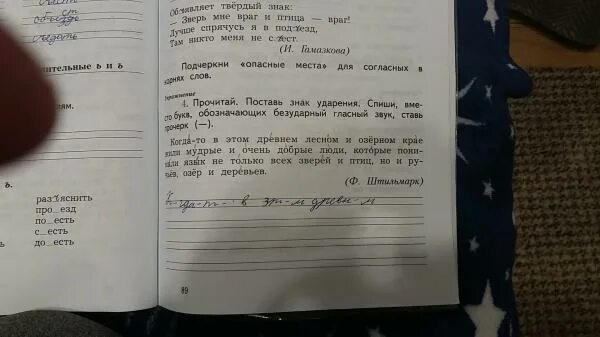 объезд
съедать
разъяснить
про_езд
по_есть
с_есть
до_есть
Объявляет твёрдый знак:
— Зверь мне враг и птица — враг!
Лучше спрячусь я в подъезд,
Там никто меня не съест.
(И. Гамазкова)
Подчеркни «опасные места» для согласных в
корнях слов.
Упражнение
4. Прочитай. Поставь знак ударения. Спиши, вме-
сто букв, обозначающих безударный гласный звук, ставь
прочерк (—).
Когда́-то в этом дре́внем лесно́м и озёрном крае
жили му́дрые и очень до́брые люди, кото́рые пони-
мали язы́к не то́лько всех звере́й и птиц, но и ру-
чьёв, озёр и дере́вьев.
(Ф. Штильмарк)
К-гда-т- в эт-м древн-м
89